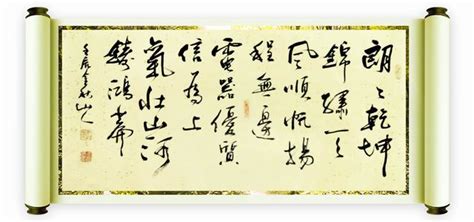 朗〻乾坤
錦繡天
風順帆揚
程無邊
電器優質
信為上
氣壯山河
鑄鴻篇
壬辰秋山人